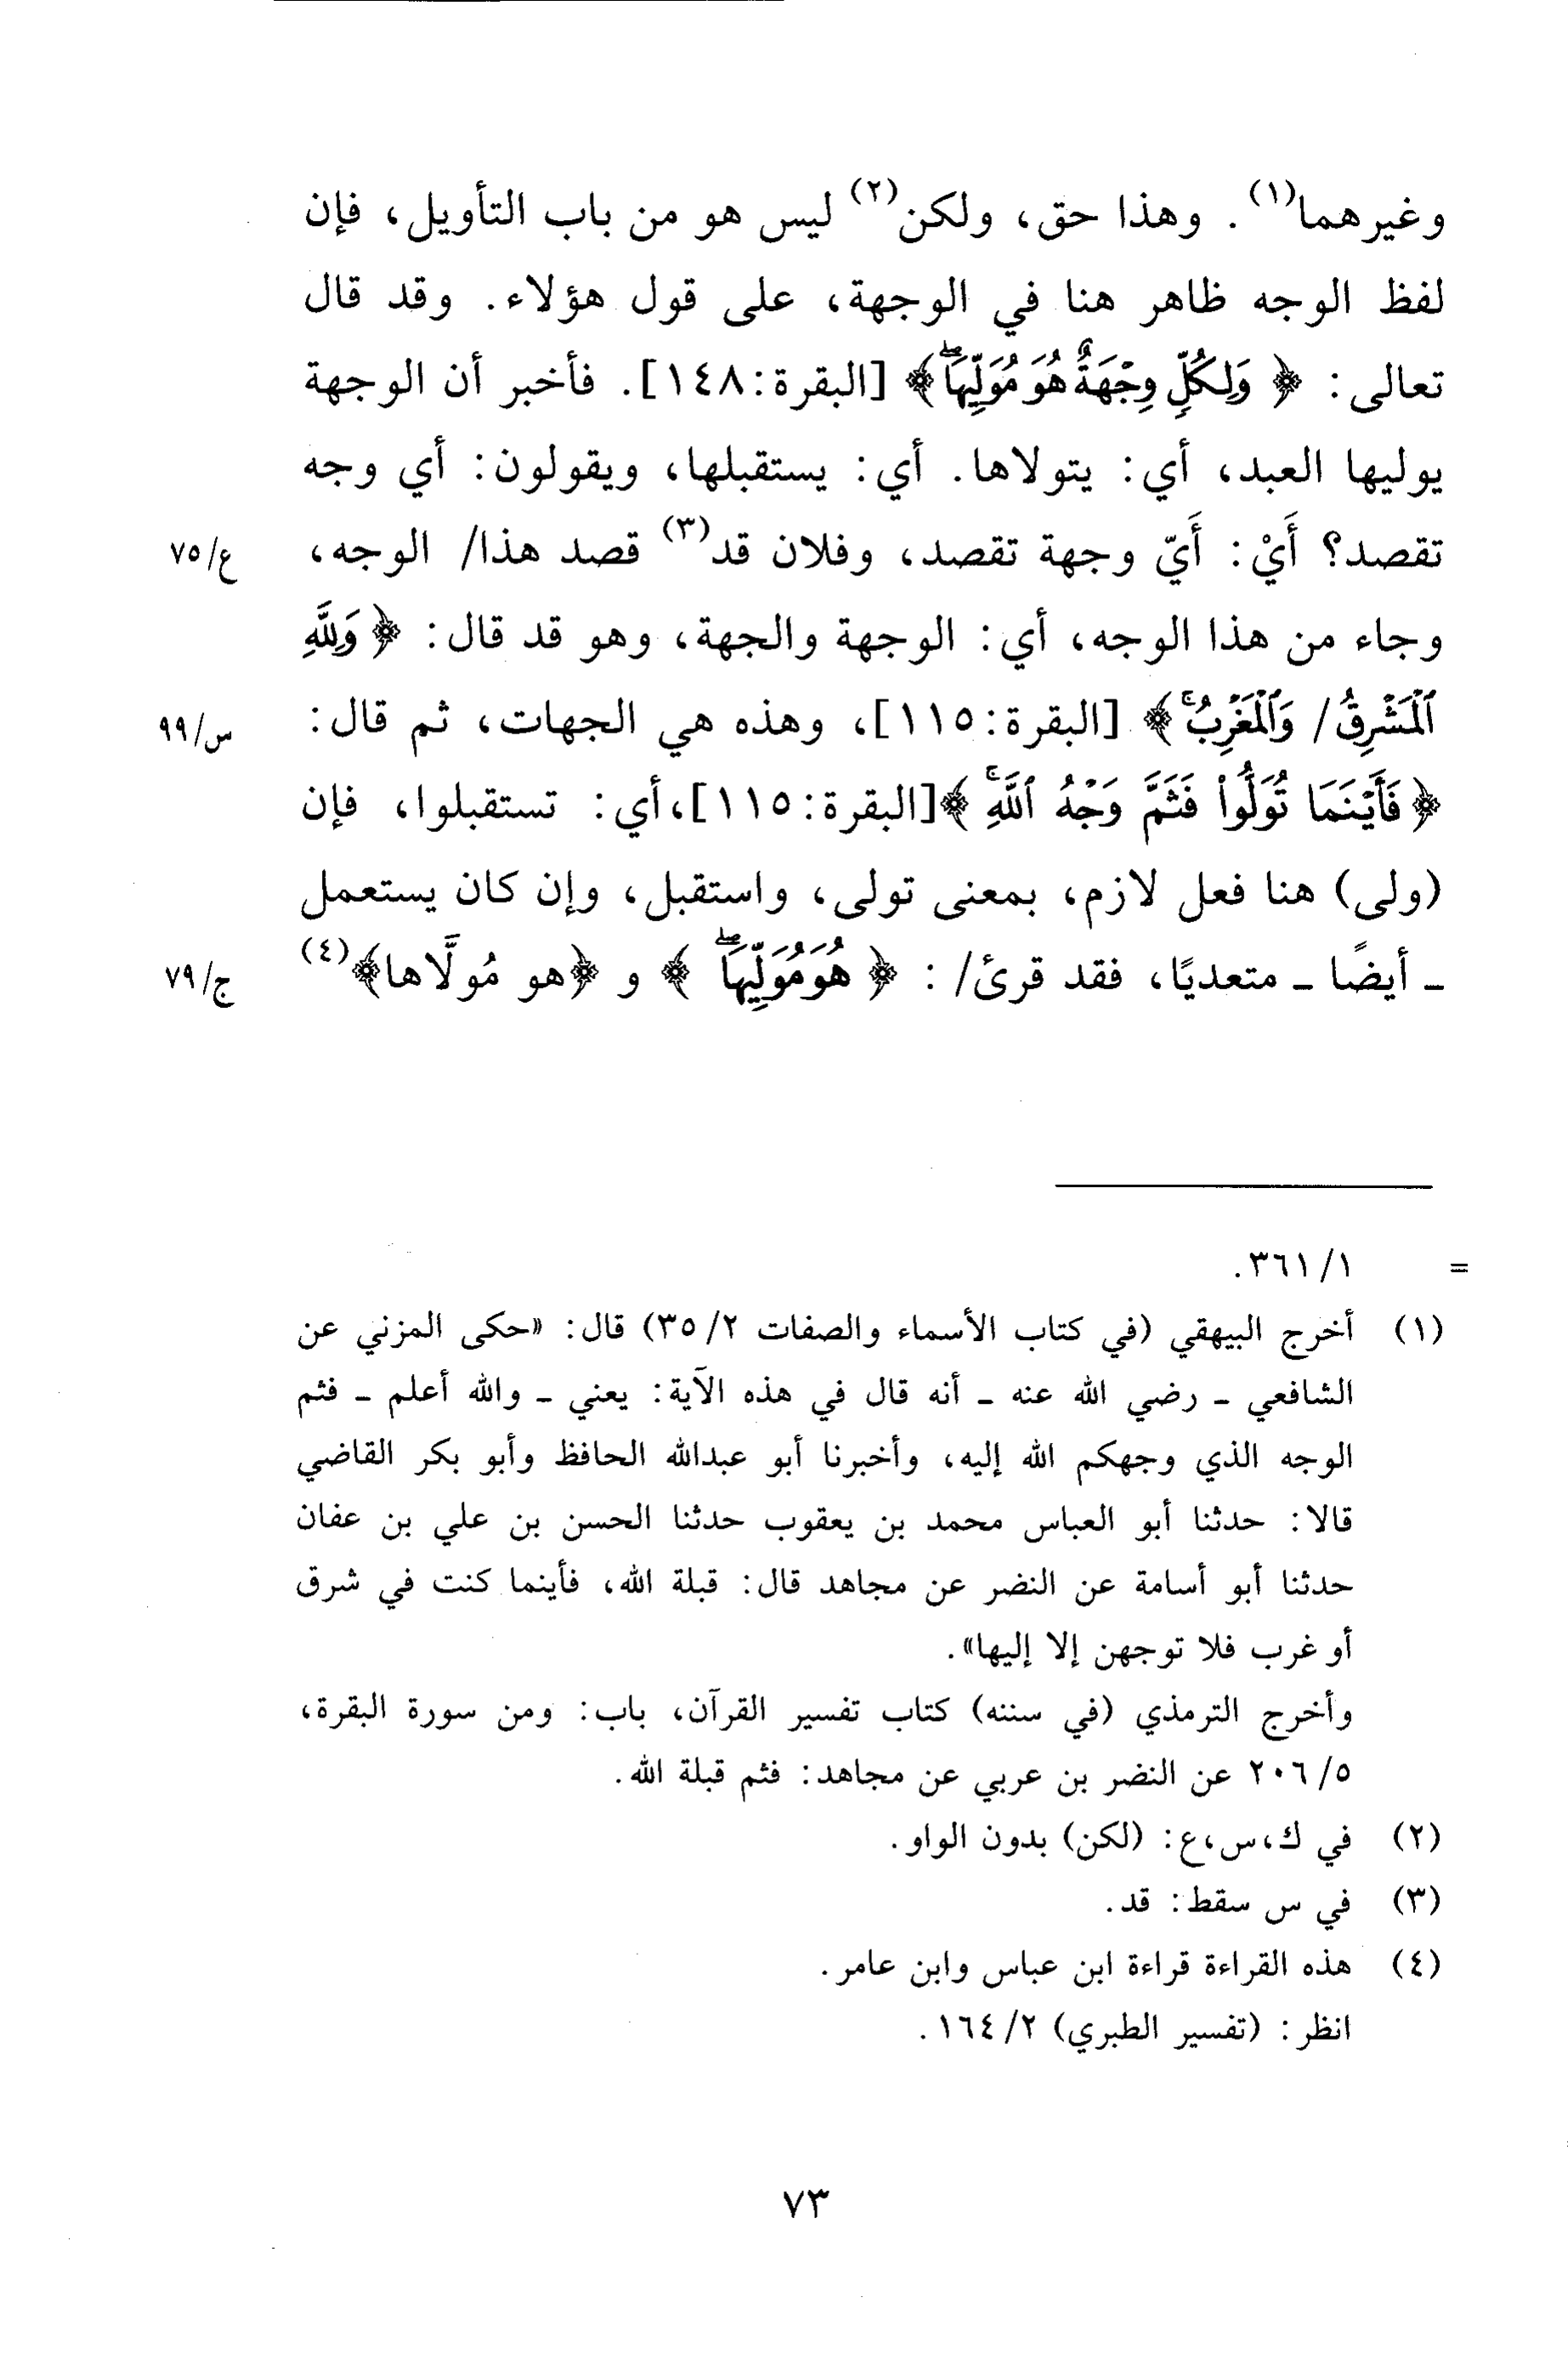 وغيرهما(١). وهذا حق، ولكن(٢) ليس هو من باب التأويل، فإن
لفظ الوجه ظاهر هنا في الوجهة، على قول هؤلاء. وقد قال
تعالى: ﴿ وَلِكُلٍّ وِجْهَةٌ هُوَ مُوَلِّيهَاۖ ﴾ [البقرة:١٤٨]. فأخبر أن الوجهة
يوليها العبد، أي: يتولاها. أي: يستقبلها، ويقولون: أي وجه
تقصد؟ أَيْ: أَيّ وجهة تقصد، وفلان قد(٣) قصد هذا/ الوجه، ع/٧٥
وجاء من هذا الوجه، أي: الوجهة والجهة، وهو قد قال: ﴿ وَلِلَّهِ
ٱلْمَشْرِقُ/ وَٱلْمَغْرِبُۚ ﴾ [البقرة:١١٥]، وهذه هي الجهات، ثم قال: س/٩٩
﴿ فَأَيْنَمَا تُوَلُّوا۟ فَثَمَّ وَجْهُ ٱللَّهِۚ ﴾[البقرة:١١٥]،أي: تستقبلوا، فإن
(ولى) هنا فعل لازم، بمعنى تولى، واستقبل، وإن كان يستعمل
ـ أيضًا ـ متعديًا، فقد قرئ/: ﴿ هُوَ مُوَلِّيهَاۖ ﴾ و ﴿هو مُولَّاها﴾(٤) ج/٧٩
= ٣٦١/١.
(١) أخرج البيهقي (في كتاب الأسماء والصفات ٣٥/٢) قال: «حكى المزني عن
الشافعي ـ رضي الله عنه ـ أنه قال في هذه الآية: يعني ـ والله أعلم ـ فثم
الوجه الذي وجهكم الله إليه، وأخبرنا أبو عبدالله الحافظ وأبو بكر القاضي
قالا: حدثنا أبو العباس محمد بن يعقوب حدثنا الحسن بن علي بن عفان
حدثنا أبو أسامة عن النضر عن مجاهد قال: قبلة الله، فأينما كنت في شرق
أو غرب فلا توجهن إلا إليها».
وأخرج الترمذي (في سننه) كتاب تفسير القرآن، باب: ومن سورة البقرة،
٢٠٦/٥ عن النضر بن عربي عن مجاهد: فثم قبلة الله.
(٢) في ك،س،ع: (لكن) بدون الواو.
(٣) في س سقط: قد.
(٤) هذه القراءة قراءة ابن عباس وابن عامر.
انظر: (تفسير الطبري) ١٦٤/٢.
٧٣